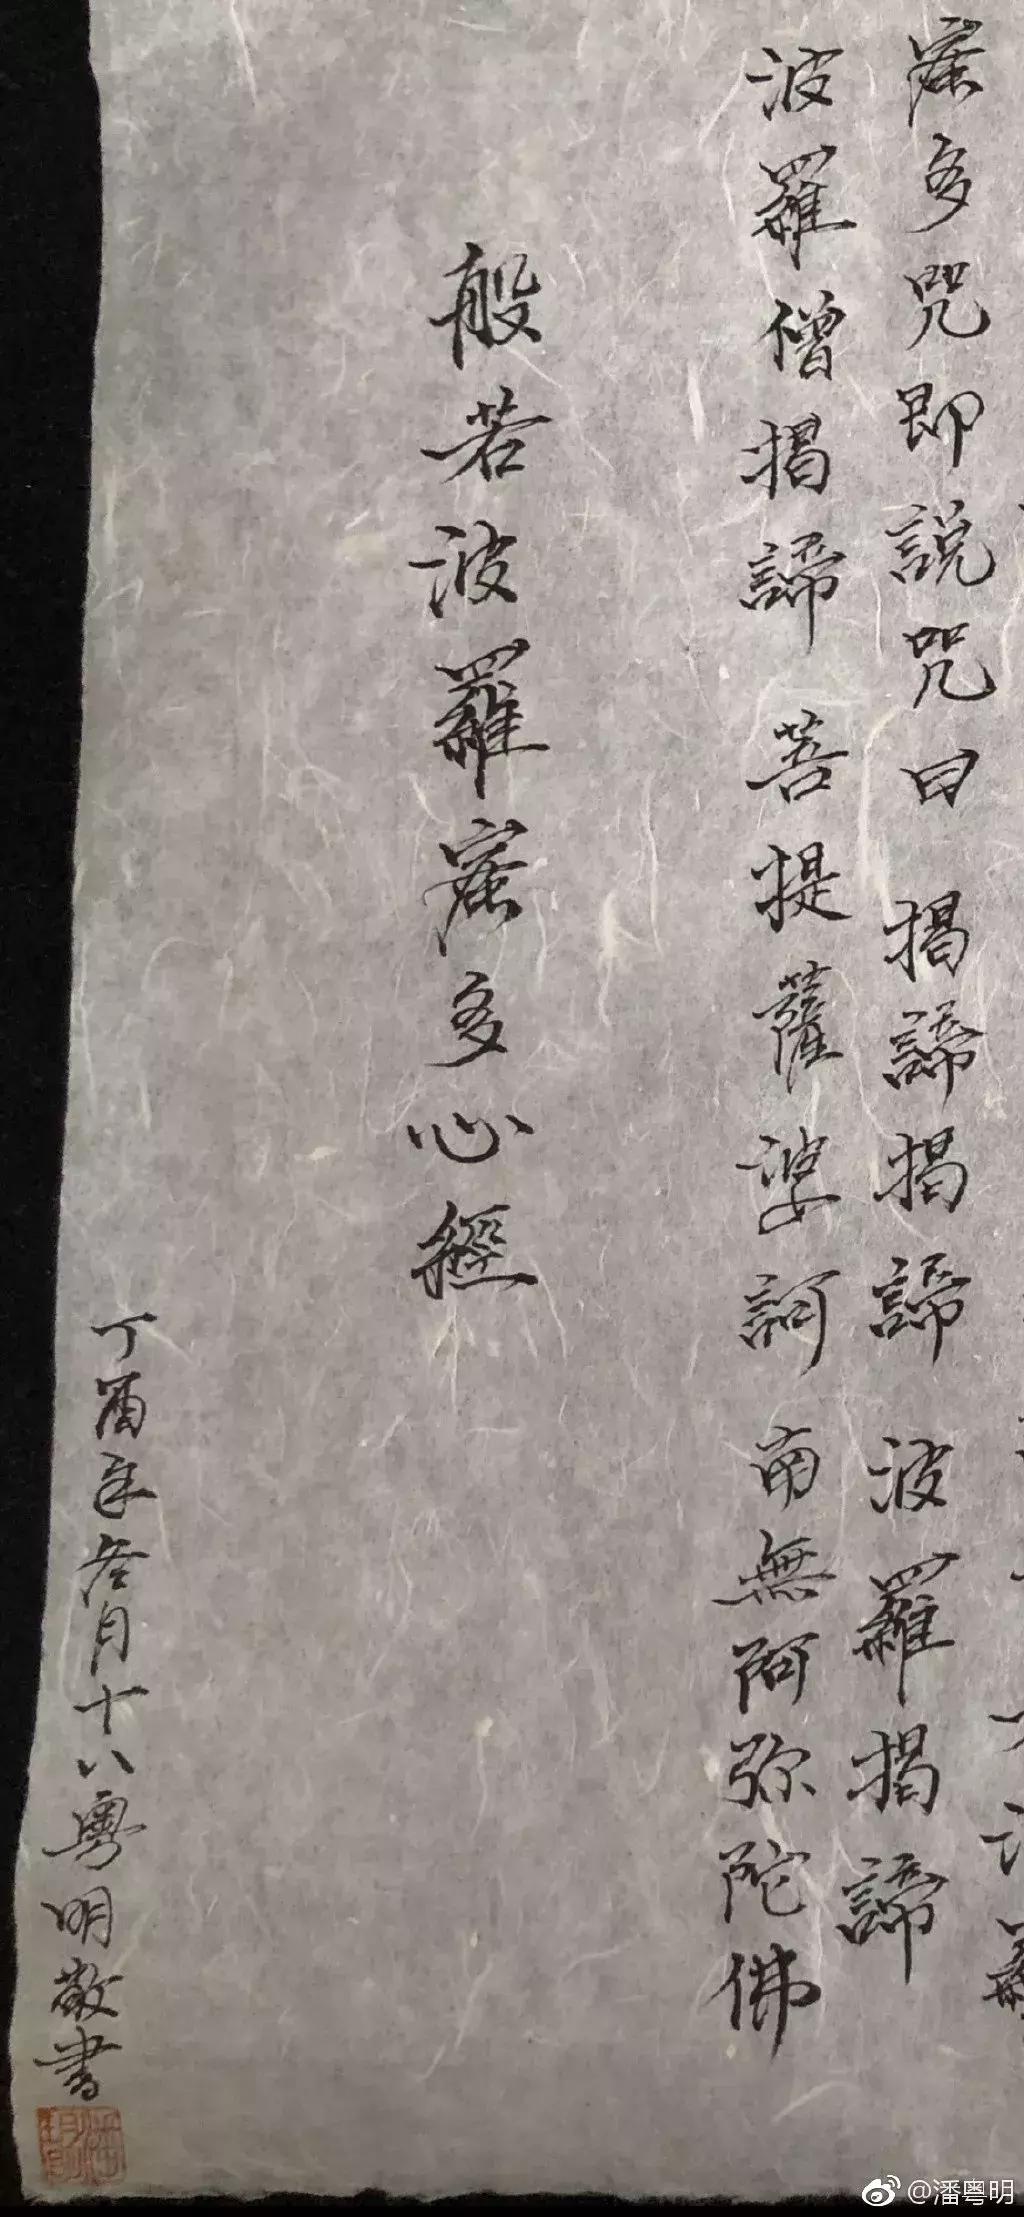 蜜多咒即說咒曰 揭諦揭諦 波羅揭諦
波羅僧揭諦 菩提薩婆訶 南無阿弥陀佛
般若波羅蜜多心經
丁酉年冬月十八粵明敬書
@潘粤明